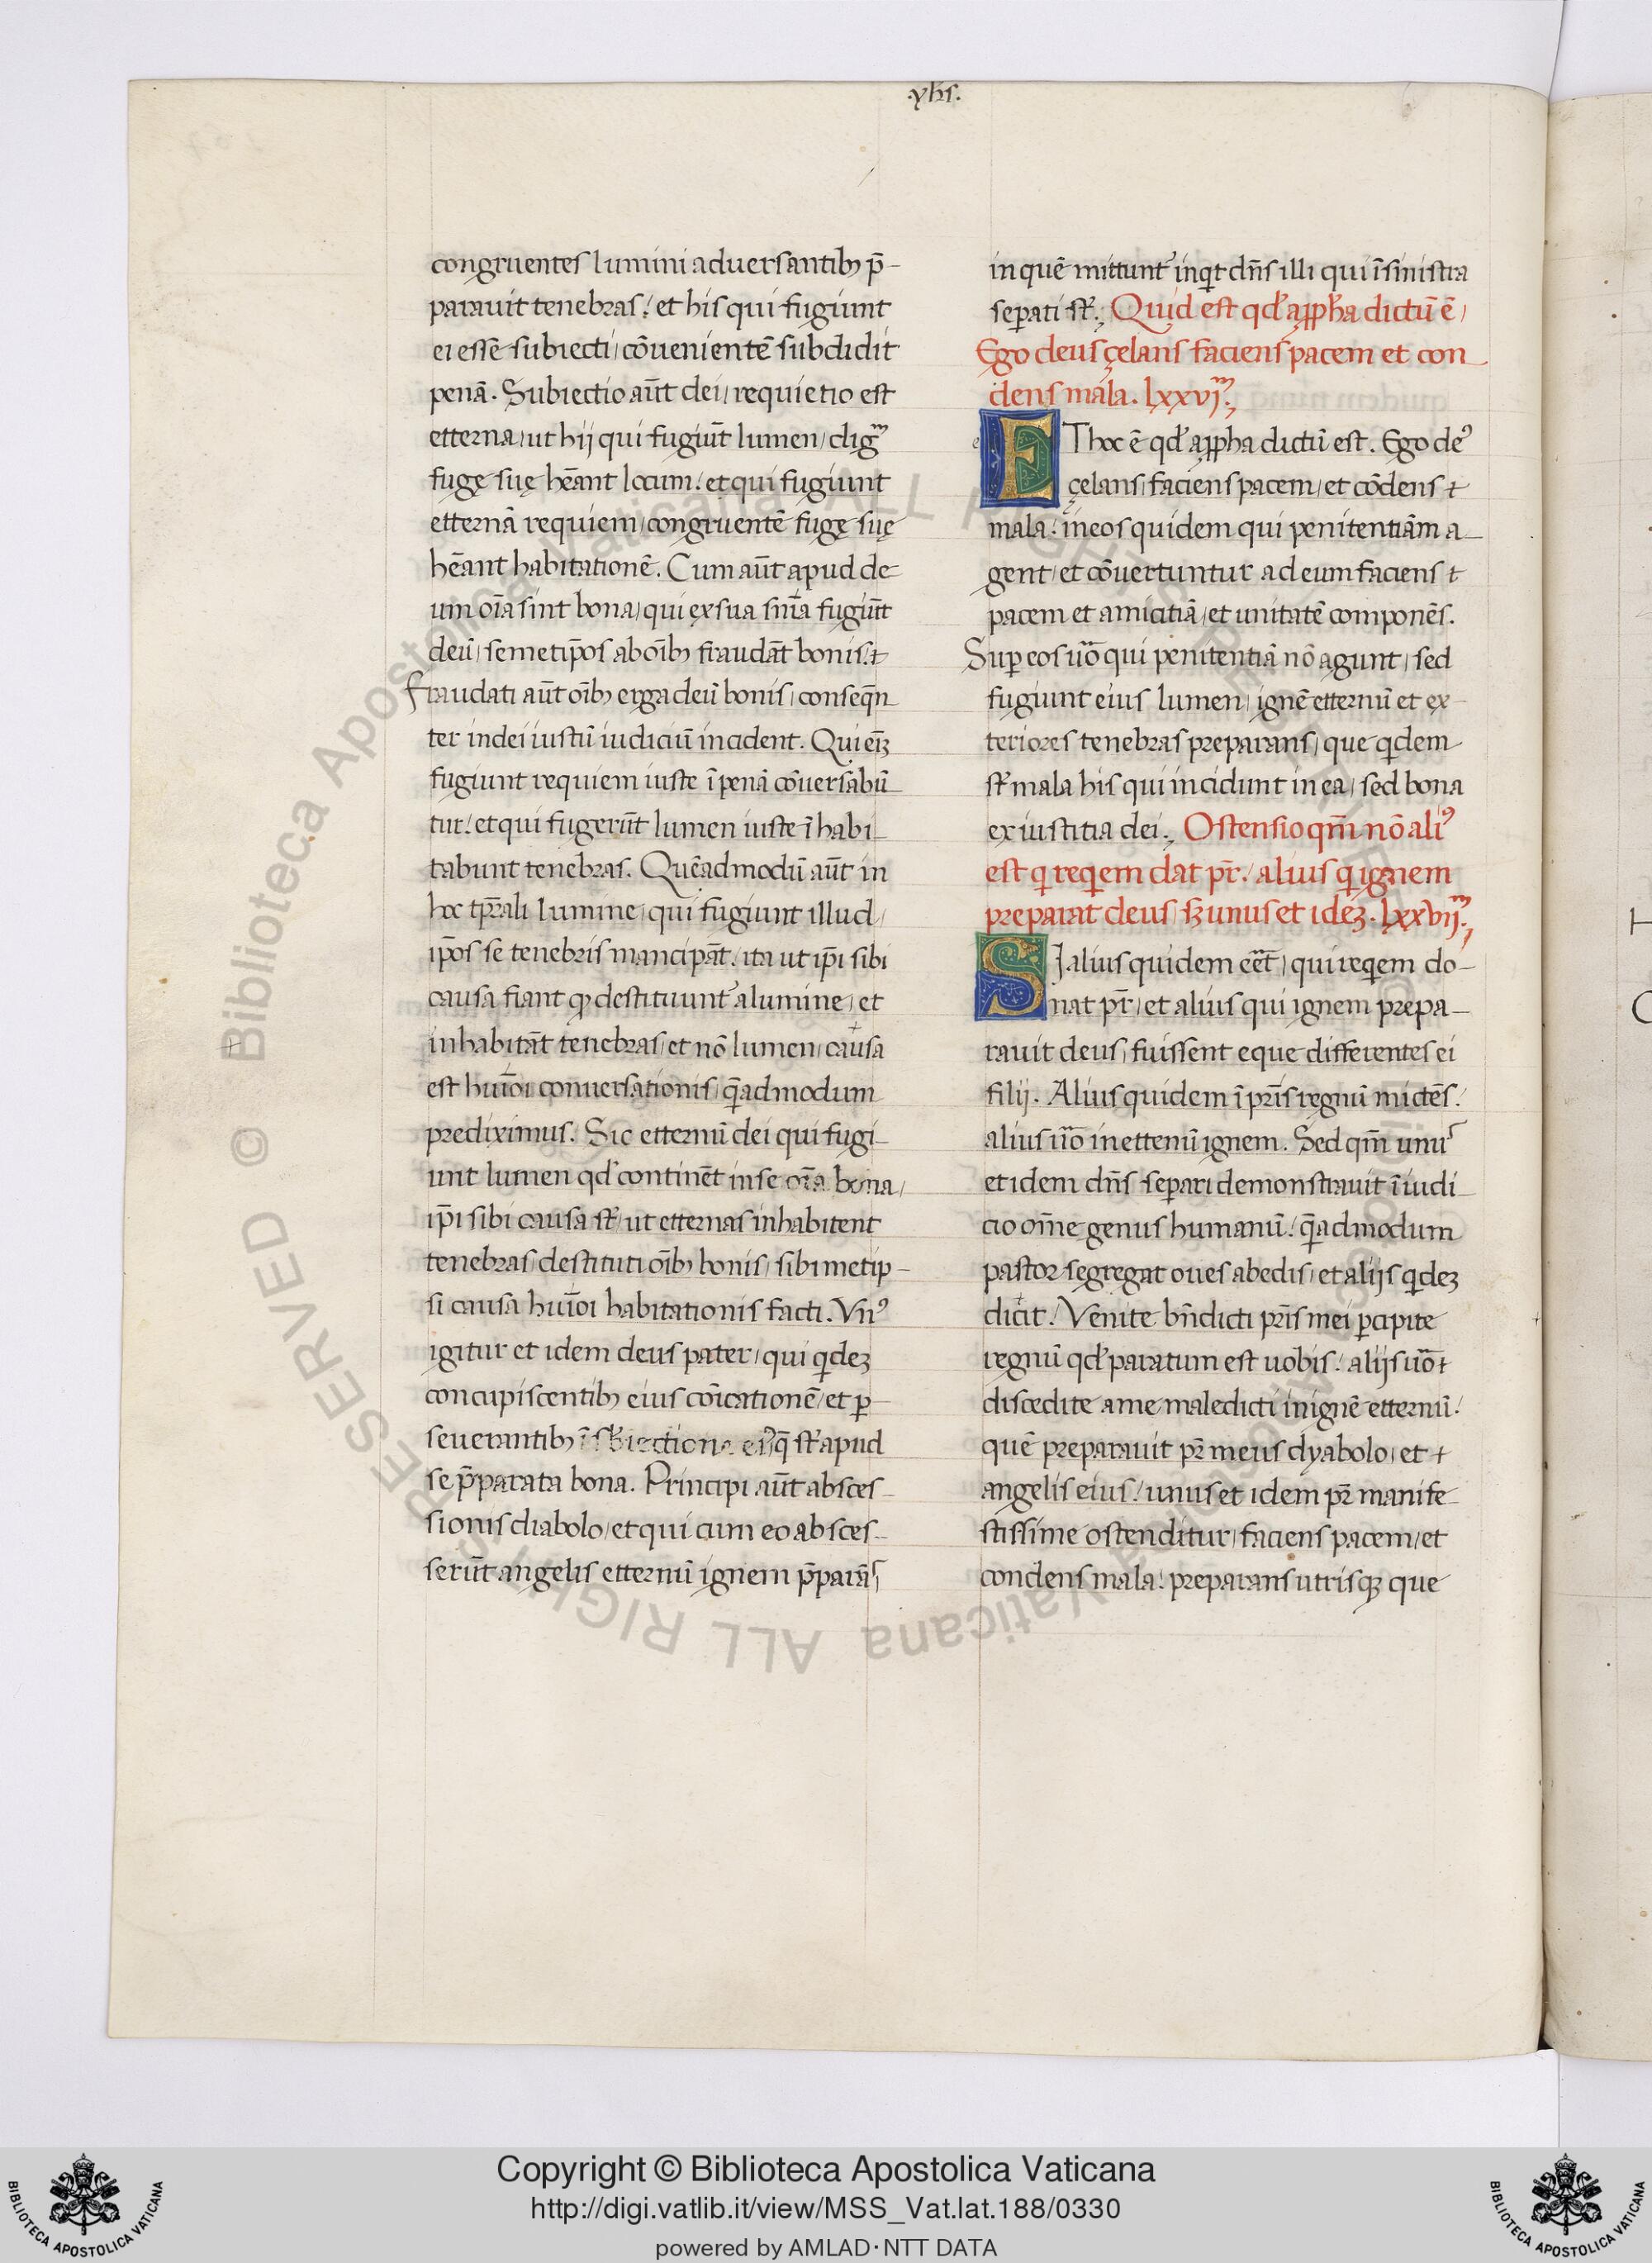 .yh̅s.
congruentes lumini aduersantibꝫ p̄-
parauit tenebras: et his qui fugiunt
ei esse subiecti, cōuenientē subdidit
penā. Subiectio aūt dei, requietio est
etterna, ut hij qui fugiūt lumen, dig̅m
fugę suę hēant locum: et qui fugiunt
etternā requiem, congruentē fugę suę
hēant habitationē. Cum aūt apud de
um oīa sint bona, qui ex sua sn̄ia fugiūt
deū, semetip̄os ab oīb; fraudāt bonis.
Fraudati aūt oīb; erga deū bonis, conseq̄n
ter in dei iustū iudiciū incident. Qui eīꝫ
fugiunt requiem iuste ī penā cōuersabū
tur: et qui fugerūt lumen iuste īhabi-
tabunt tenebras. Quēadmodū aūt in
hoc tp̄rali lumine, qui fugiunt illud,
ip̄os se tenebris mancipāt: ita ut ip̄i sibi
causa fiant ꝙ destituunt᷑ a lumine, et
inhabitāt tenebras, et nō lumen, causa
est huīoi conuersationis, q̄admodum
prediximus. Sic etternū dei qui fugi-
unt lumen qd̓ continēt in se oīa bona,
ip̄i sibi causa st̄, ut etternas inhabitent
tenebras, destituti oīb; bonis, sibimetip-
si causa huīoi habitationis facti. Vnꝰ
igitur et idem deus pater, qui qͥdeꝫ
concupiscentib; eius cōicationē, et ꝑ-
seuerantib; ī sb̓iectione eiꝰ q̄ st̄ apud
se p̄parata bona. Principi aūt absces-
sionis diabolo, et qui cum eo absces-
serūt angelis etternū ignem p̄parās,
in quē mittunt᷑ inqͥt dn̄s illi qui ī sinistra
seꝑati st̄. Quid est qd̓ a ꝓpha dictū ē,
Ego deus çelans faciens pacem et con
dens mala. lxxvj.m
ET hoc ē qd̓ a ꝓpha dictū est. Ego deꝰ
çelans, faciens pacem, et cōdens
mala: in eos quidem qui penitentiām a-
gent, et cōuertuntur ad eum faciens
pacem et amicitiā, et unitatē componēs.
Suꝑ eos uͦo qui penitentiā nō agunt, sed
fugiunt eius lumen, ignē etternū et ex-
teriores tenebras preparans, que qͥdem
st̄ mala his qui incidunt in ea, sed bona
ex iustitia dei. Ostensio qm̄ nō aliꝰ
est qͥ reqͥem dat pr̄: alius qͥ ignem
preparat deus, sꝫ unus et ideꝫ. lxxvij.m
SJ alius quidem eēt, qui reqͥem do-
nat pr̄, et alius qui ignem prepa-
rauit deus, fuissent eque differentes ei
filij. Alius quidem ī pr̄is regnū mictēs:
alius uͦo in etternū ignem. Sed qm̄ unus
et idem dn̄s seꝑari demonstrauit ī iudi-
cio om̄e genus humanū: q̄admodum
pastor segregat oues ab edis, et alijs qͥdeꝫ
dicit: Venite bn̄dicti pr̄is mei ꝑcipite
regnū qd̓ paratum est uobis: alijs uͦo
discedite a me maledicti in ignē etternū:
quē preparauit pr̄ meus dyabolo, et
angelis eius: unus et idem pr̄ manife-
stissime ostenditur, faciens pacem, et
condens mala: preparans utrisqꝫ que
Copyright © Biblioteca Apostolica Vaticana
http://digi.vatlib.it/view/MSS_Vat.lat.188/0330
powered by AMLAD·NTT DATA